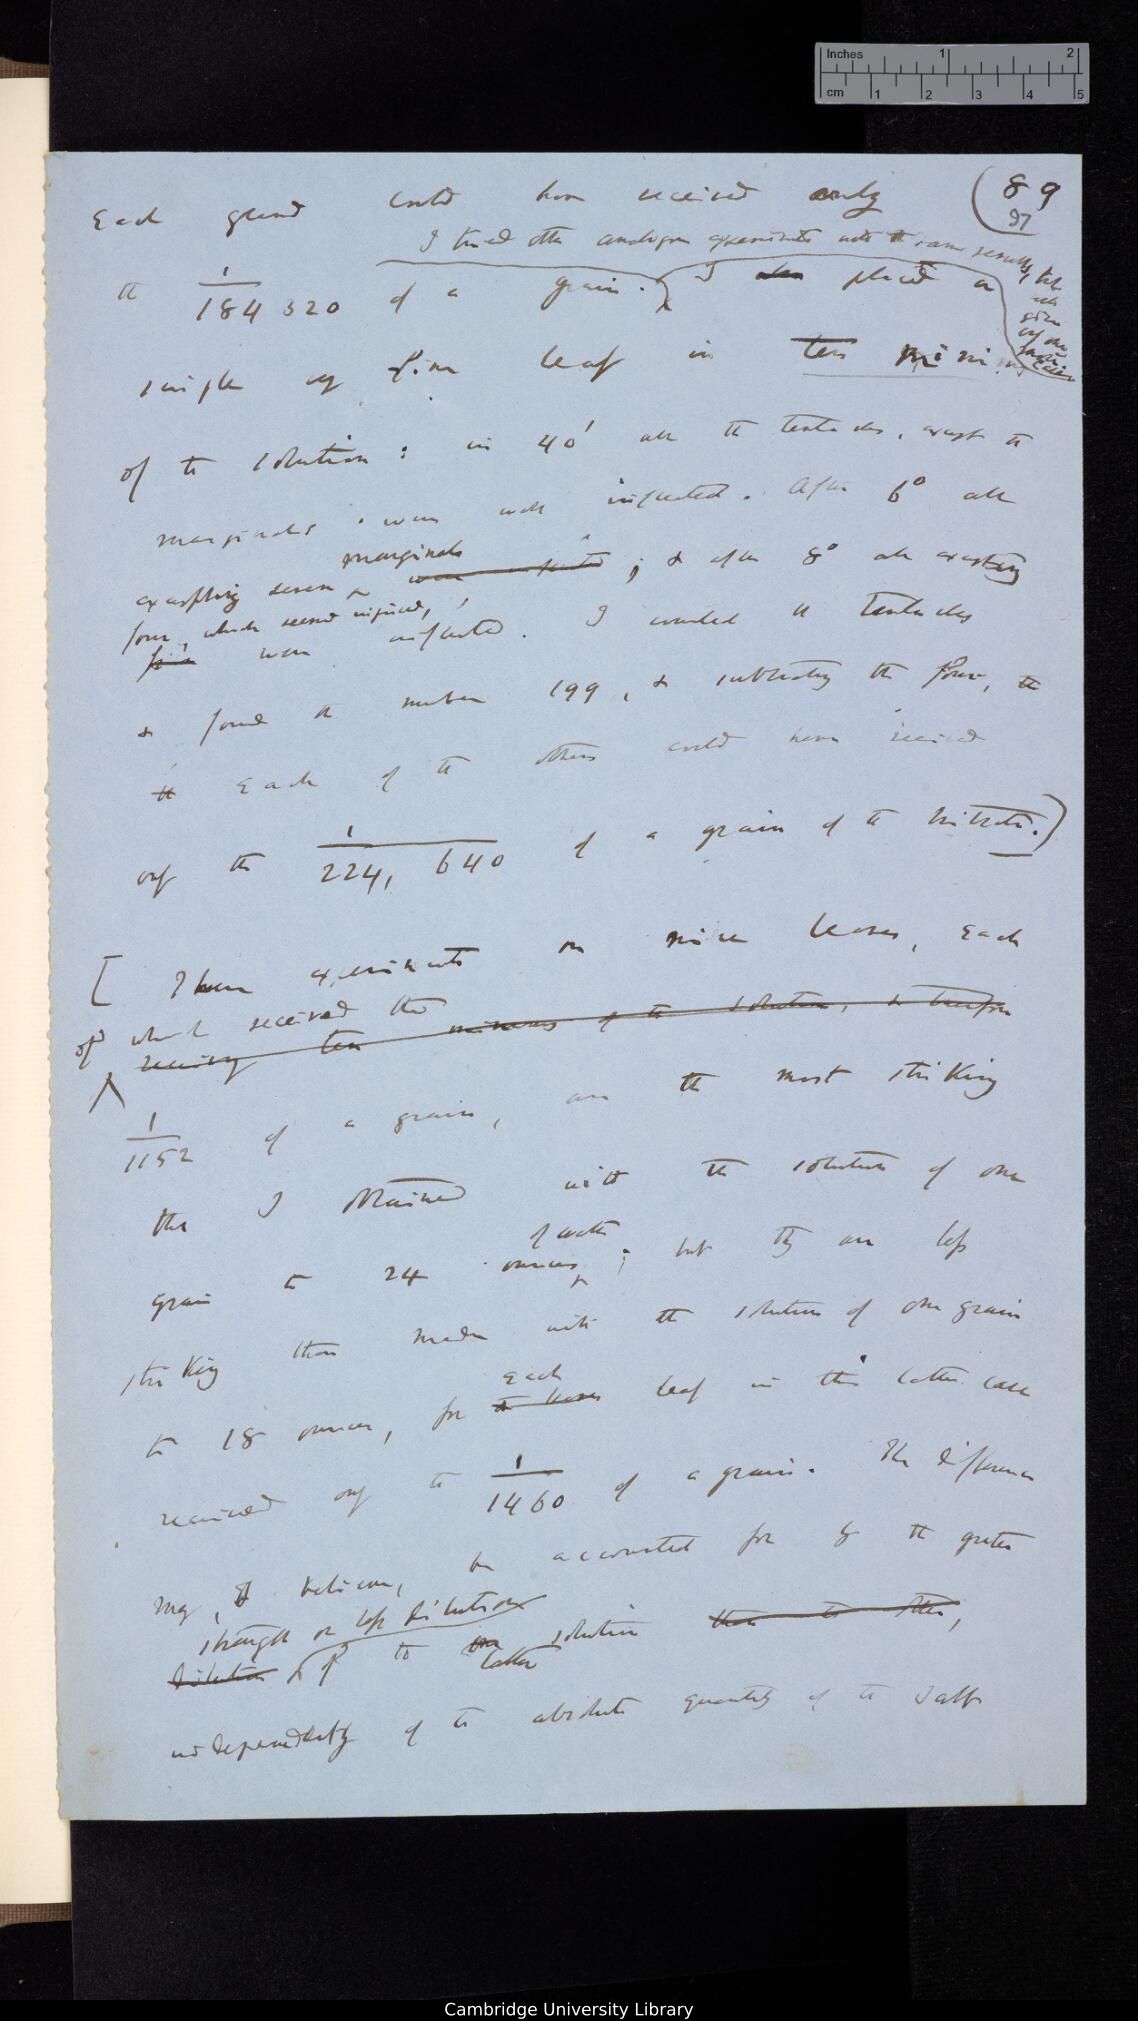 (89
97
Each gland could have received only
I tried other analogous experiments with the same results, but
the 1/184 320 of a grain. I placed a
single very fine leaf in ten minims
of the solution: in 40' all the tentacles, except the
marginals were well inflected. After 6° all
marginals
excepting seven were inflected; & after 8° all excepting
four, which seemed injured,
were inflected. I counted the tentacles
& found the number 199, & subtracting the four, the
the Each of the others could have received
only the 1/224, 640 of a grain of the nitrate.)
[These experiments on nine leaves, each
of which received the
receiving ten minims of the solution, & therefore
1/1152 of a grain, are the most striking
that I obtained with the solution of one
of water
grain to 24 ounces; but they are less
striking than made with the solution of one grain
each
to 18 ounces, for the leaves leaf in this latter case
received only the 1/1460 of a grain. The difference
may, I believe, be accounted for by the greater
strength or less dilution
dilution of the one solution than the other,
latter
independently of the absolute quantity of the salts
Inches 1 2
cm 1 2 3 4 5
Cambridge University Library